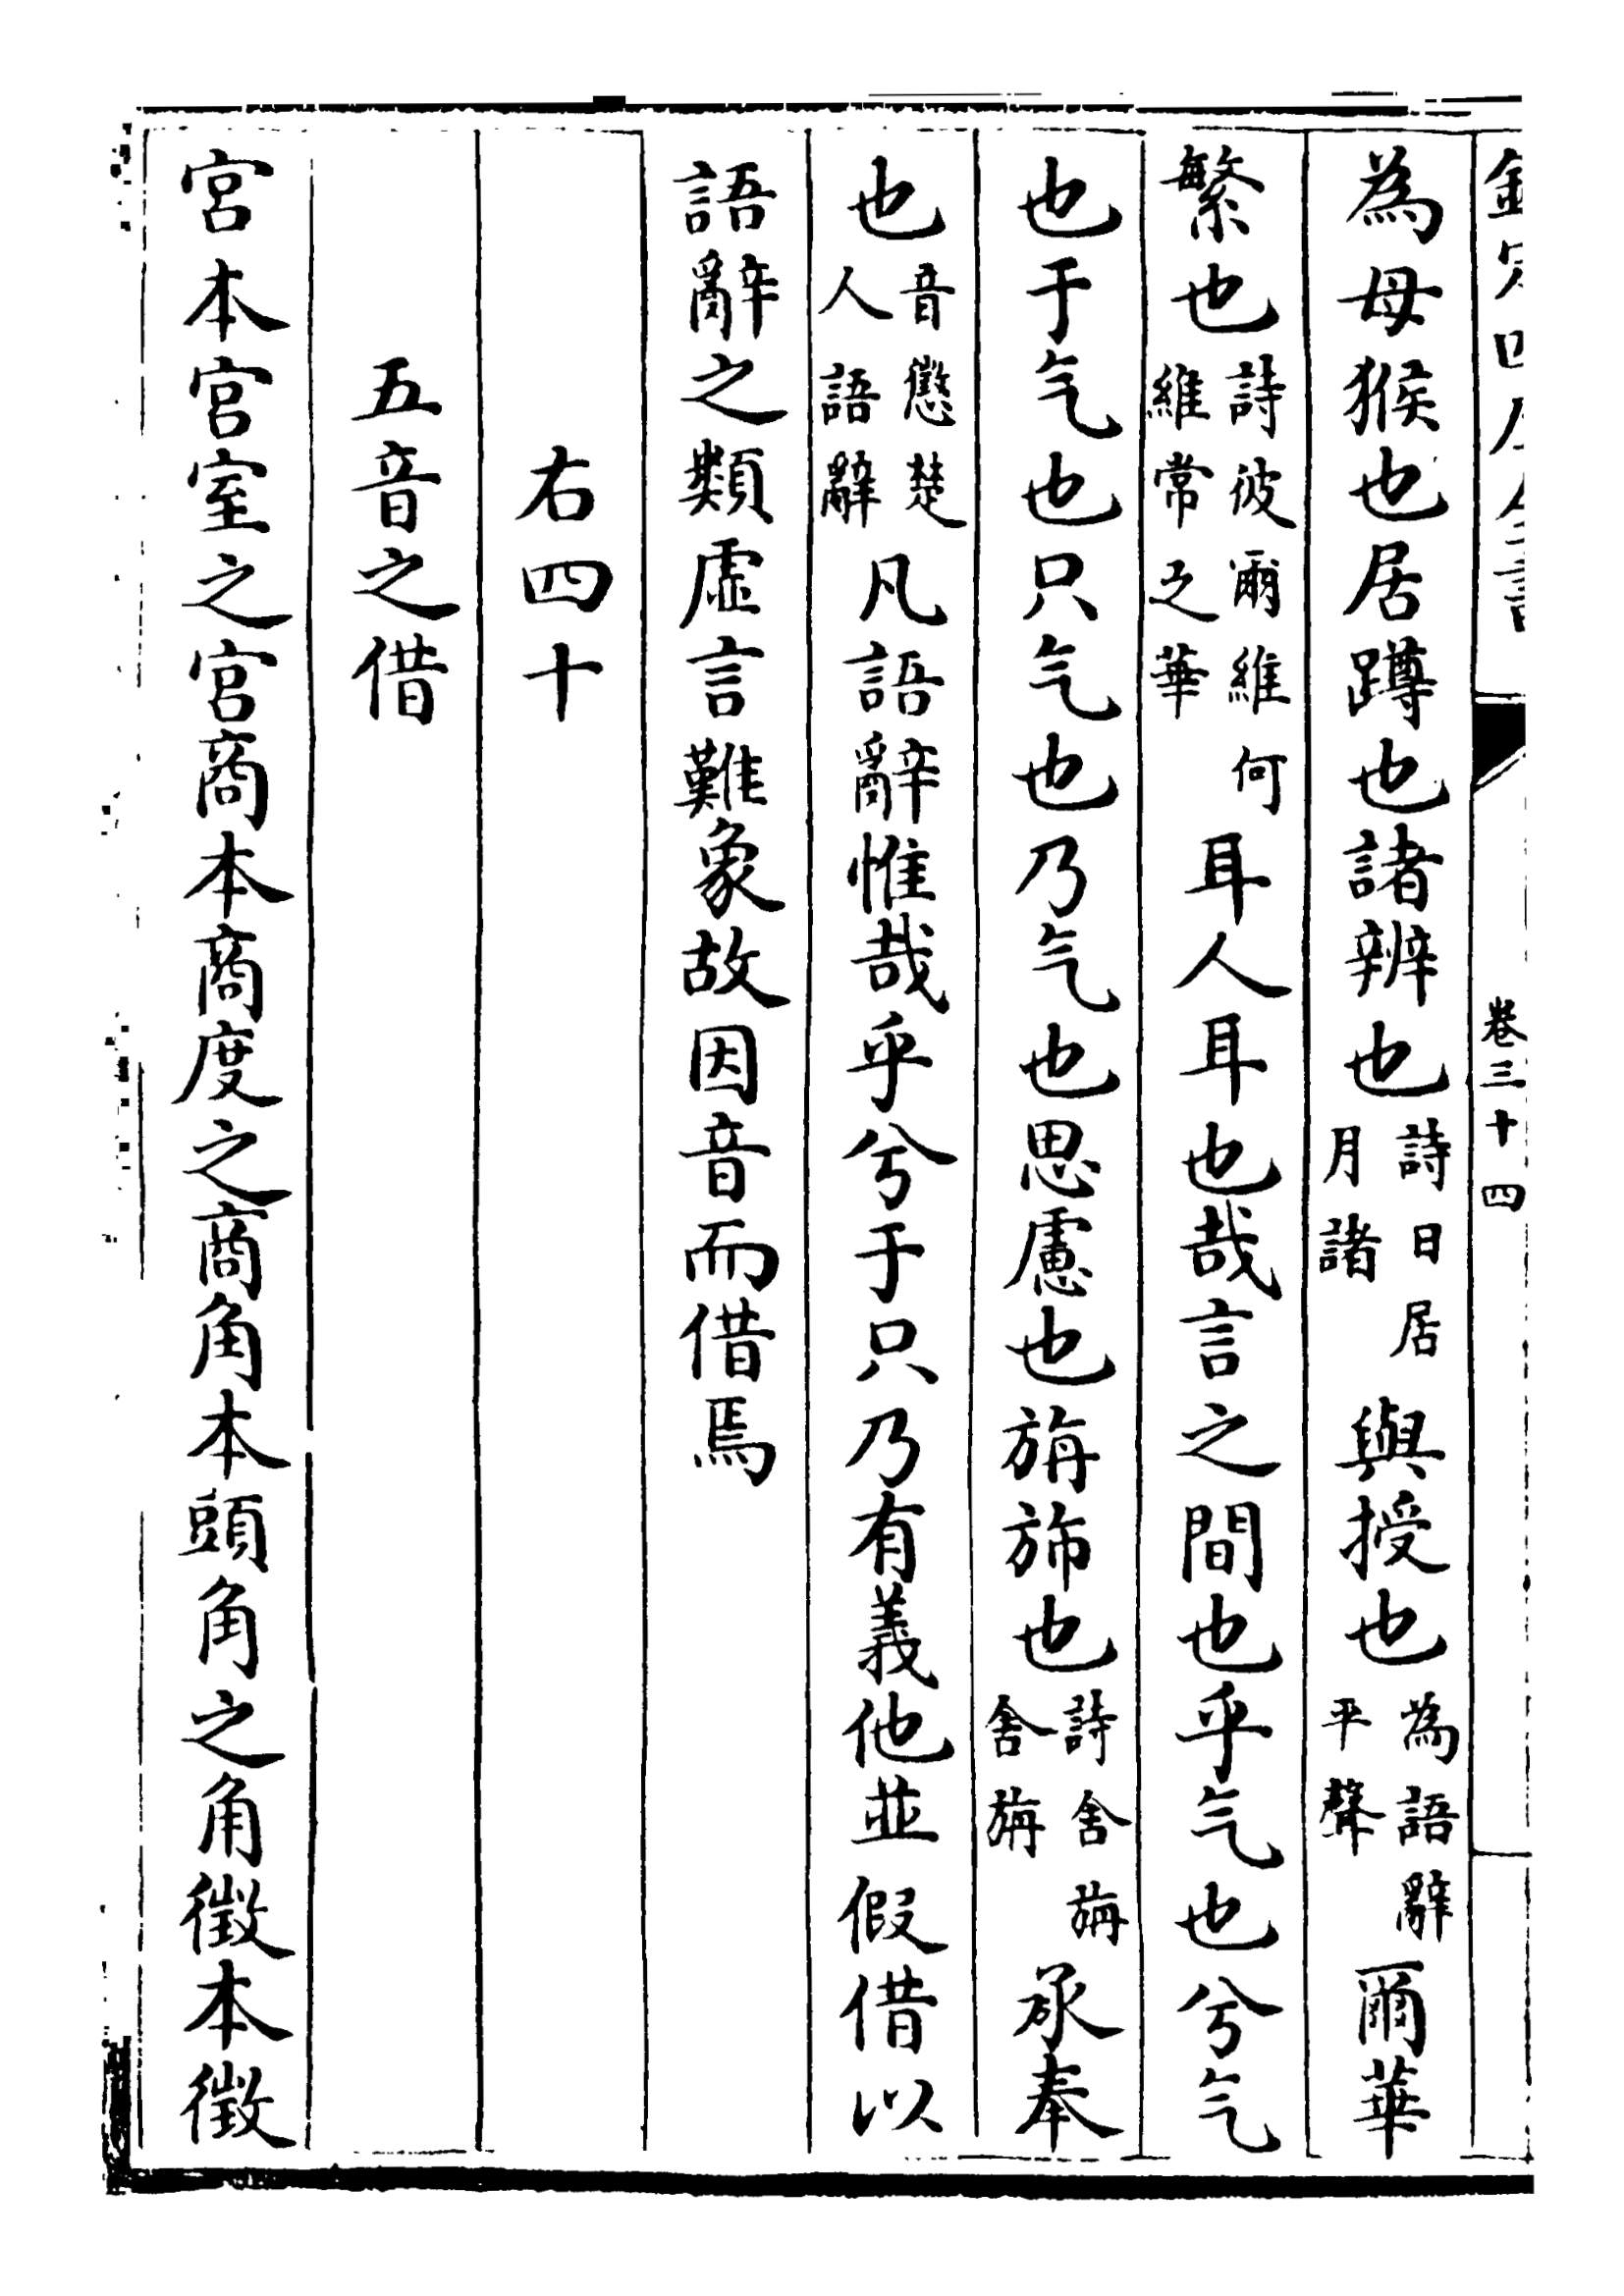 欽定四庫全書 卷三十四
為母猴也居蹲也諸辨也詩日居月諸與授也為語辭平聲爾華
繁也詩彼爾維何維常之華耳人耳也哉言之間也乎气也兮气
也于气也只气也乃气也思慮也旃旆也詩舍旃舍旃承奉
也音懲楚人語辭凡語辭惟哉乎兮于只乃有義他並假借以
語辭之類虛言難象故因音而借焉
右四十
五音之借
宮本宮室之宮商本商度之商角本頭角之角徵本徵